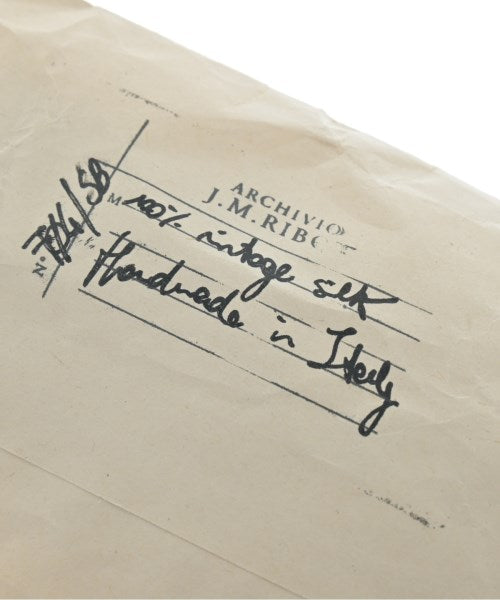 ARCHIVIO
J.M.RIBO
M 100% vintage silk
Handmade in Italy
N°